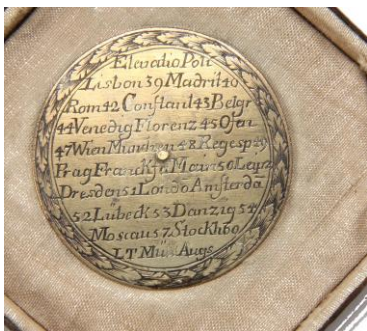 Elevatio Poli
Lisbon 39 Madrit 40
Rom 42 Constant 43 Belgr
44 Venedig Florenz 45 Ofen
47 Wien München 48 Regesp 49
Prag Franckf a Main 50 Leipz
Dresden 51 Londo Amsterda
52 Lübeck 53 Danzig 54
Moscau 57 Stockh 60
LT Mü Augs